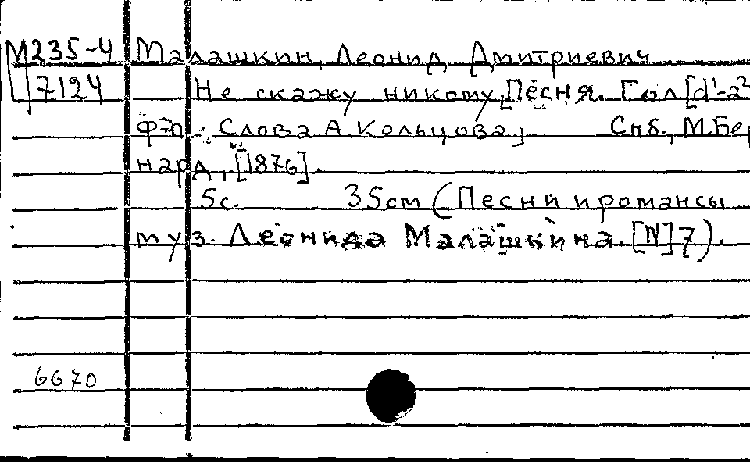 М235-4 Малашкин, Леонид Дмитриевич
7124 Не скажу никому. Песня. Гол[d¹-a²
ф-п. Слова А. Кольцова, Спб., М. Бер
нард, [1876].
5с. 35см (Песни и романсы
муз. Леонида Малашкина. [N] 7).
6670